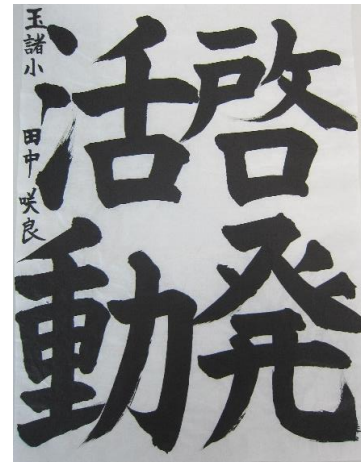 啓発
活動
玉諸小 田中咲良